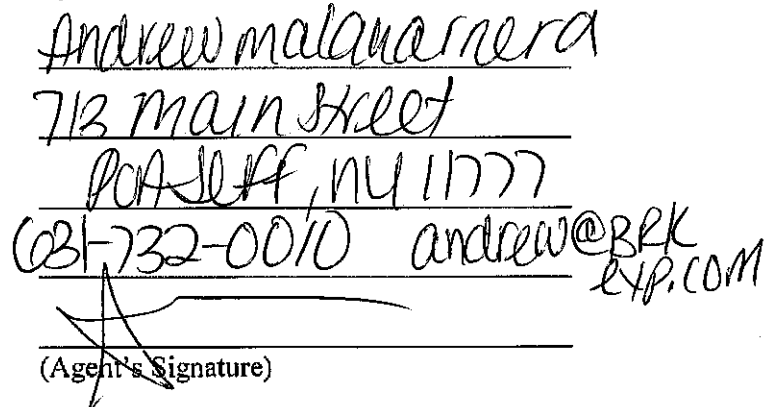 Andrew malguarnera
713 main street
Port Jeff, NY 11777
631-732-0010 andrew@BRK
exp.com
(Agent's Signature)